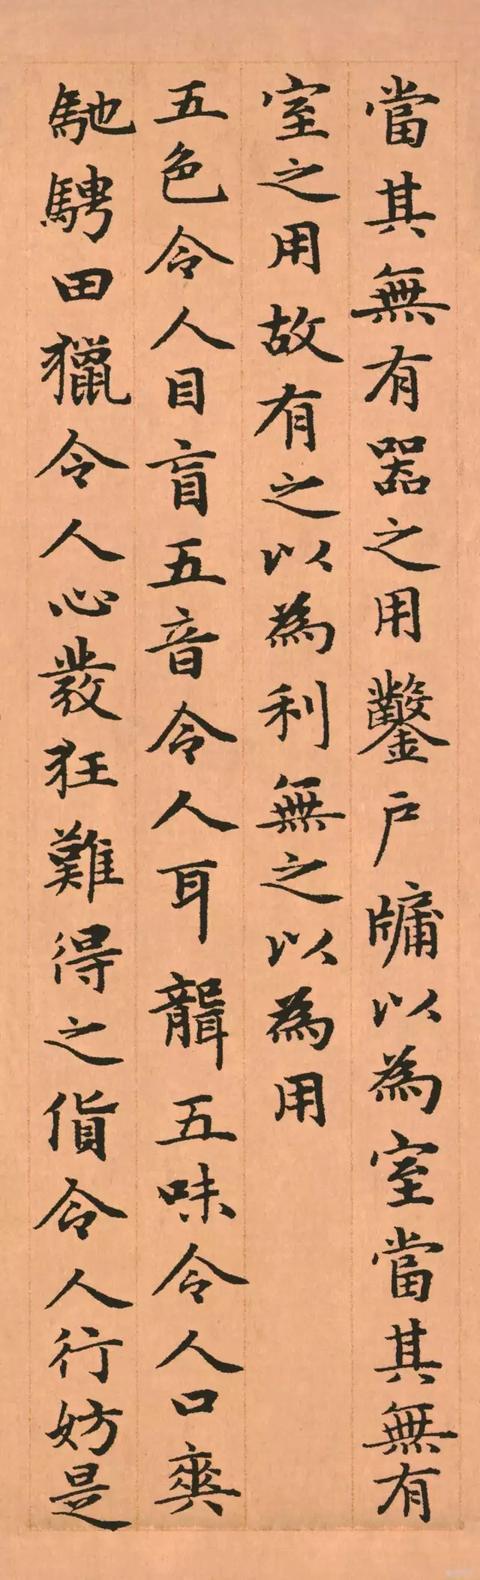 當其無有器之用鑿戶牖以為室當其無有
室之用故有之以為利無之以為用
五色令人目盲五音令人耳聾五味令人口爽
馳騁田獵令人心發狂難得之貨令人行妨是